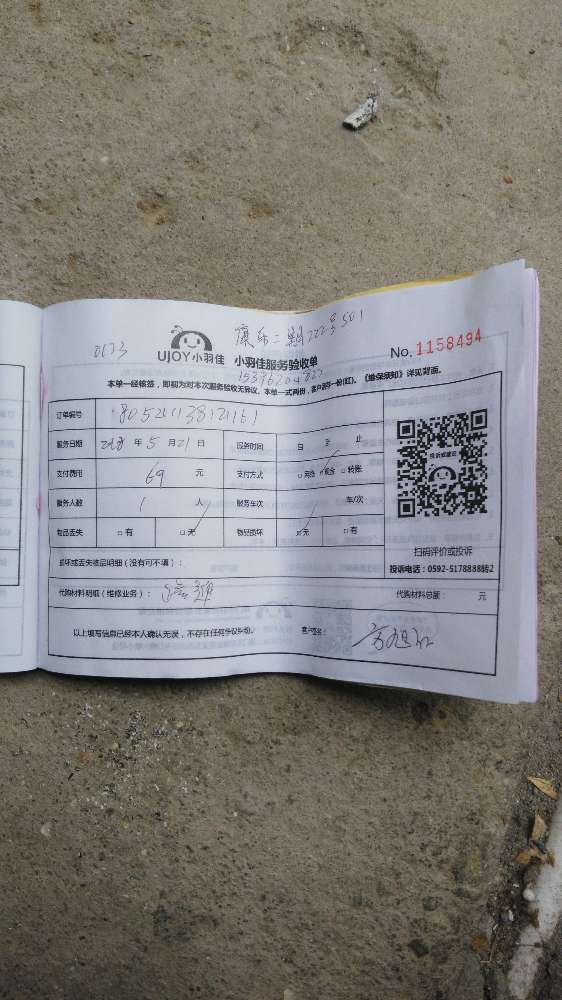 0173
康乐二期222号501
UJOY小羽佳 小羽佳服务验收单
No. 1158494
本单一经核签，即视为对本次服务验收无异议，本单一式两份，客户留存一份(红)。《维保须知》详见背面。
订单编号
服务日期 2018 年 5 月 21 日 服务时间 自 至 止
支付费用 69 元 支付方式 □ 网络 □ 现金 □ 转账
服务人数 1 人 服务车次 车/次
物品丢失 □ 有 □ 无 物品损坏 □ 无 □ 有
损坏或丢失物品明细（没有可不填）：
代购材料明细（维修业务）： 代购材料总额： 元
以上填写信息已经本人确认无误，不存在任何争议纠纷。 客户签名：
投诉或建议
扫码评价或投诉
投诉电话：0592-5178888转2